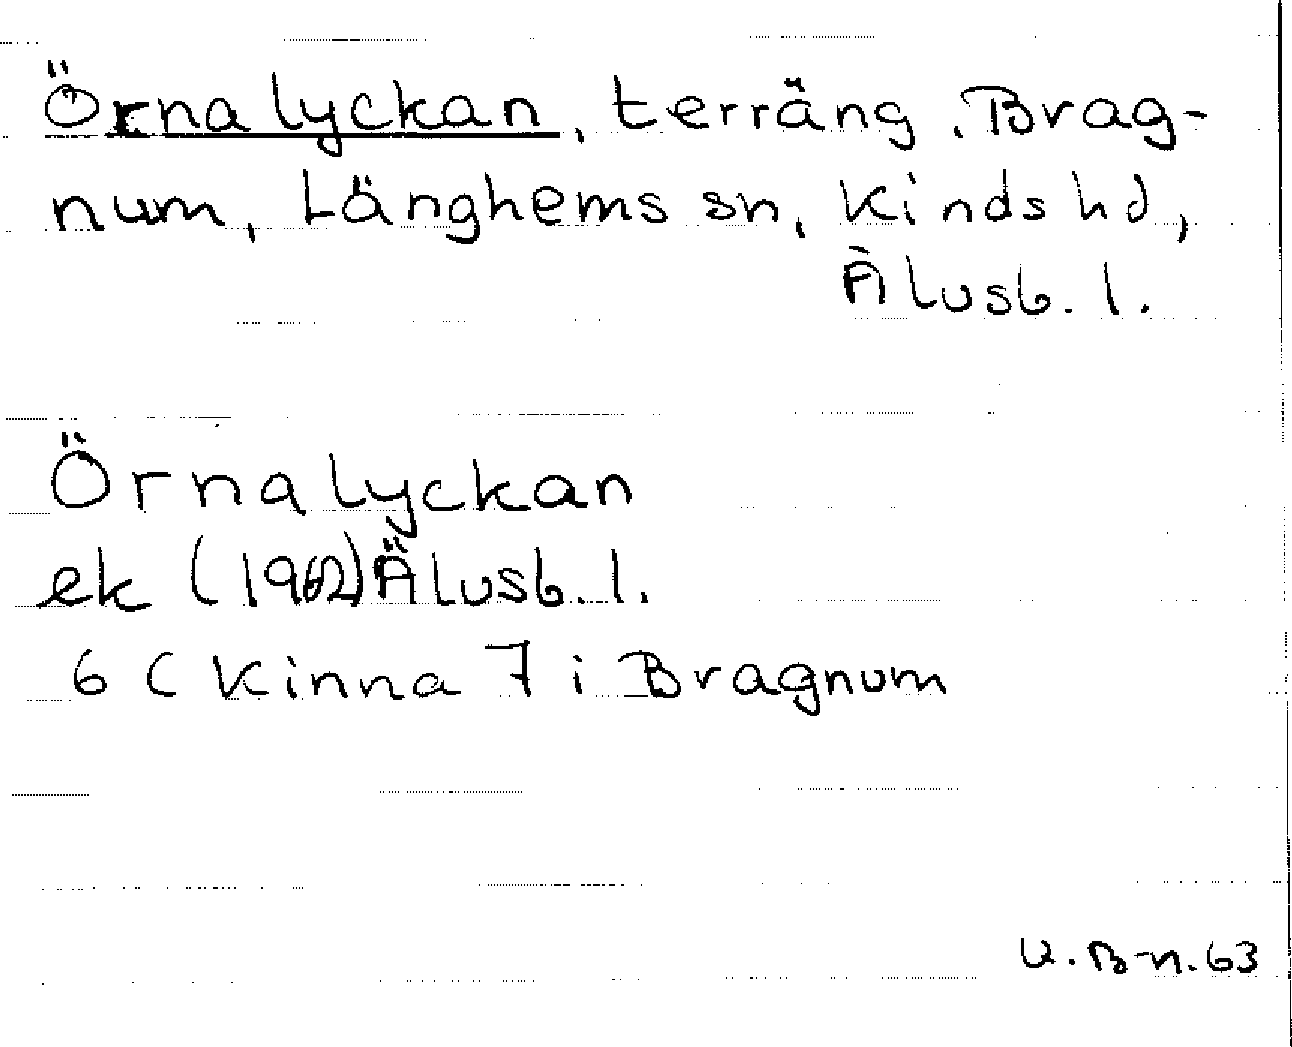 Örnalyckan, terräng, Brag-
num, Länghems sn, Kinds hd,
Älvsb. l.
Örnalyckan
ek (1962) Älvsb. l.
6 C Kinna 7 i Bragnum
U. B-n. 63